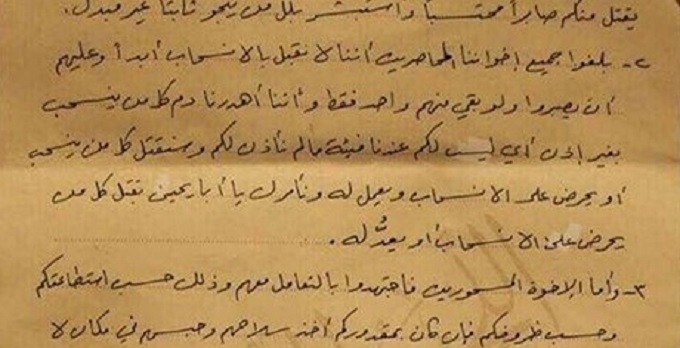 يقتل منكم صابراً محتسباً واستبشر بكل من ينجو ثابتاً غير مبدل.
٢- بلغوا جميع إخواننا المحاصرين أننا لا نقبل بالانسحاب أبداً وعليهم
أن يصبروا ولو بقي منهم واحد فقط وأننا أهدرنا دم كل من ينسحب
بغير إذن أي ليس لكم عندنا فيئة مالم نأذن لكم وسنقتل كل من ينسحب
أو يحرض على الانسحاب ويعمل له ونأمرك يا أبا بقتل كل من
يحرض على الانسحاب أو يعدُّ له.
٣- وأما الإخوة فاجتهدوا بالتعامل معهم وذلك حسب استطاعتكم
وحسب ظروفكم فإن كان بمقدوركم أخذ سلاحهم وحبسهم في مكان لا